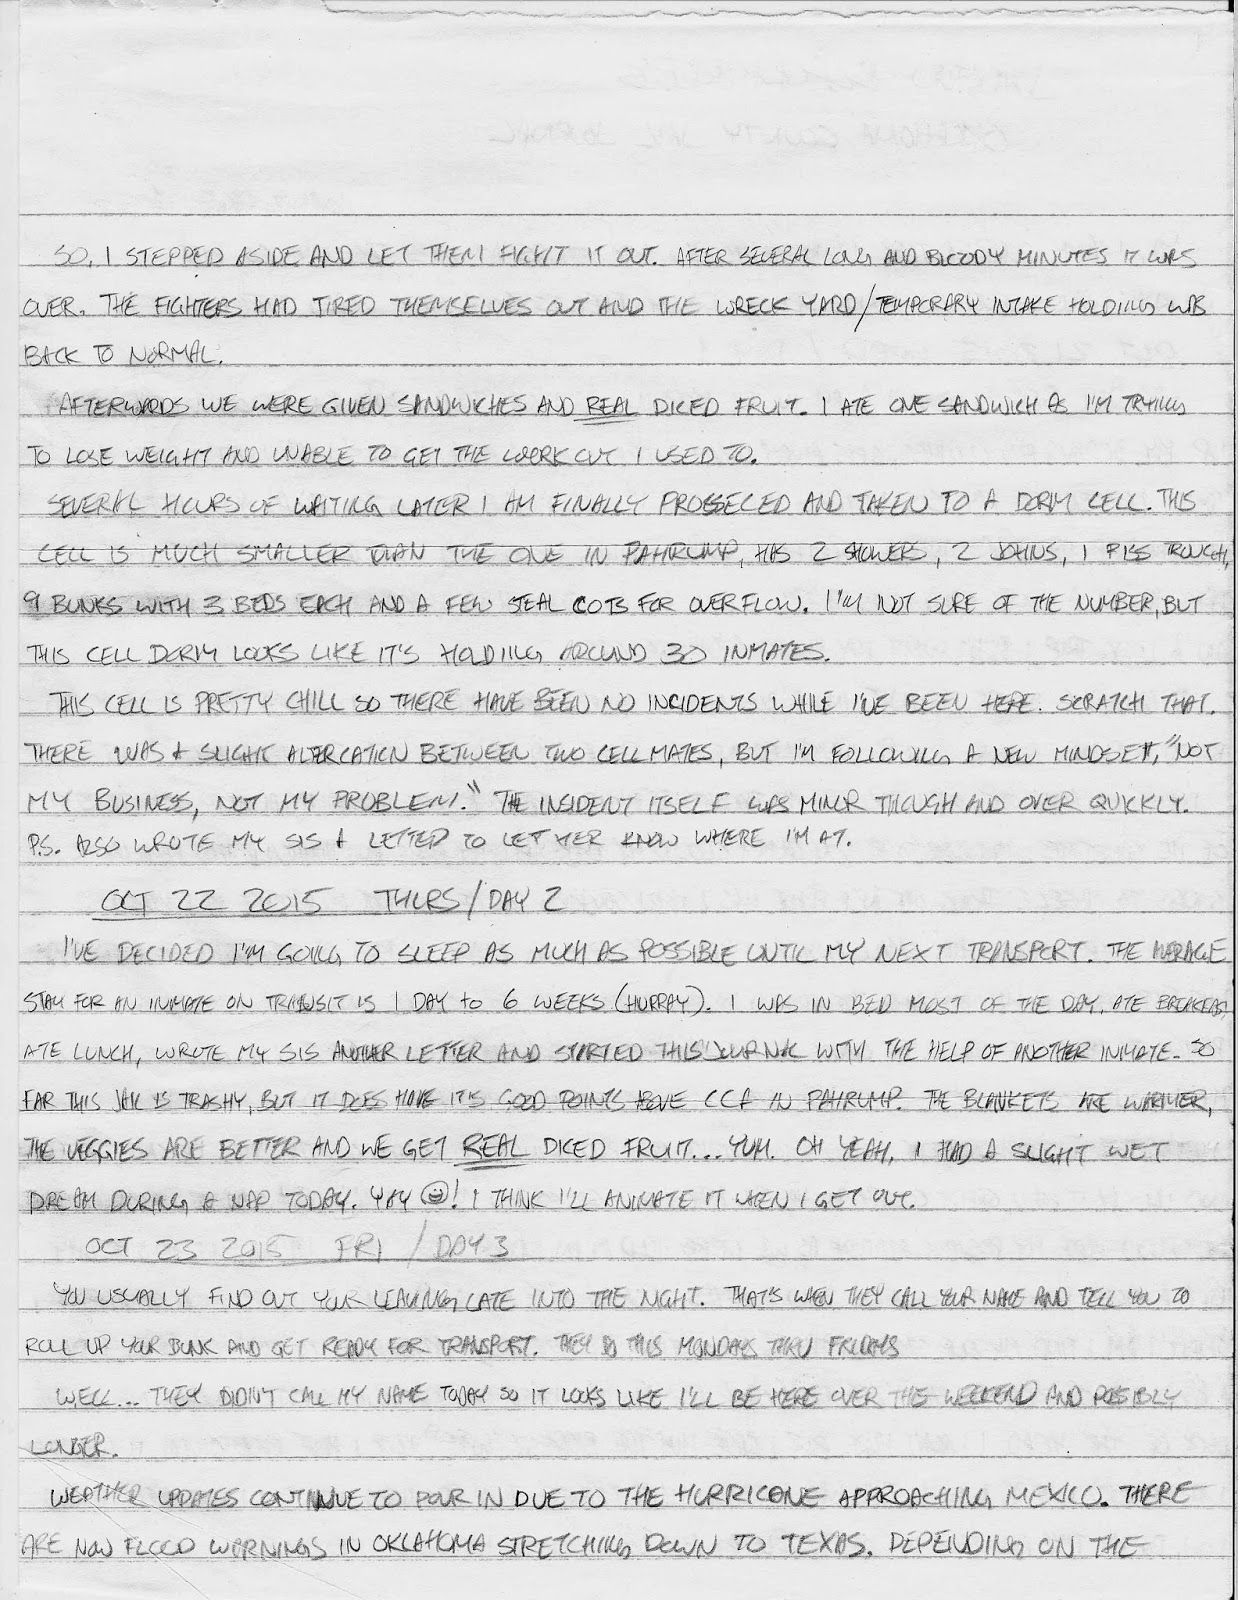 SO, I STEPPED ASIDE AND LET THEM FIGHT IT OUT. AFTER SEVERAL LONG AND BLOODY MINUTES IT WAS
OVER. THE FIGHTERS HAD TIRED THEMSELVES OUT AND THE WRECK YARD/TEMPORARY INTAKE HOLDING WAS
BACK TO NORMAL.
AFTERWARDS WE WERE GIVEN SANDWICHES AND REAL DICED FRUIT. I ATE ONE SANDWICH AS I'M TRYING
TO LOSE WEIGHT AND UNABLE TO GET THE WORKOUT I USED TO.
SEVERAL HOURS OF WAITING LATER I AM FINALLY PROSSECED AND TAKEN TO A DORM CELL. THIS
CELL IS MUCH SMALLER THAN THE ONE IN PAHRUMP, HAS 2 SHOWERS, 2 JOHNS, 1 PISS TROUGH,
9 BUNKS WITH 3 BEDS EACH AND A FEW STEAL COTS FOR OVERFLOW. I'M NOT SURE OF THE NUMBER, BUT
THIS CELL DORM LOOKS LIKE IT'S HOLDING AROUND 30 INMATES.
THIS CELL IS PRETTY CHILL SO THERE HAVE BEEN NO INCIDENTS WHILE I'VE BEEN HERE. SCRATCH THAT.
THERE WAS A SLIGHT ALTERCATION BETWEEN TWO CELLMATES, BUT I'M FOLLOWING A NEW MINDSET, "NOT
MY BUSINESS, NOT MY PROBLEM." THE INSIDENT ITSELF WAS MINOR THOUGH AND OVER QUICKLY.
P.S. ALSO WROTE MY SIS A LETTED TO LET HER KNOW WHERE I'M AT.
OCT 22 2015 THURS/DAY 2
I'VE DECIDED I'M GOING TO SLEEP AS MUCH AS POSSIBLE UNTIL MY NEXT TRANSPORT. THE AVERAGE
STAY FOR AN INMATE ON TRANSIT IS 1 DAY TO 6 WEEKS (HURRAY). I WAS IN BED MOST OF THE DAY, ATE BREAKFAST,
ATE LUNCH, WROTE MY SIS ANOTHER LETTER AND STARTED THIS JOURNAL WITH THE HELP OF ANOTHER INMATE. SO
FAR THIS JAIL IS TRASHY, BUT IT DOES HAVE IT'S GOOD POINTS ABOVE CCA IN PAHRUMP. THE BLANKETS ARE WARMER,
THE VEGGIES ARE BETTER AND WE GET REAL DICED FRUIT... YUM. OH YEAH, I HAD A SLIGHT WET
DREAM DURING A NAP TODAY. YAY ☺! I THINK I'LL ANIMATE IT WHEN I GET OUT.
OCT 23 2015 FRI/DAY 3
YOU USUALLY FIND OUT YOUR LEAVING LATE INTO THE NIGHT. THAT'S WHEN THEY CALL YOUR NAME AND TELL YOU TO
ROLL UP YOUR BUNK AND GET READY FOR TRANSPORT. THEY DO THIS MONDAYS THRU FRIDAYS
WELL... THEY DIDN'T CALL MY NAME TODAY SO IT LOOKS LIKE I'LL BE HERE OVER THE WEEKEND AND POSSIBLY
LONGER.
WEATHER UPDATES CONTINUE TO POUR IN DUE TO THE HURRICONE APPROACHING MEXICO. THERE
ARE NOW FLOOD WORNINGS IN OKLAHOMA STRETCHING DOWN TO TEXAS. DEPENDING ON THE